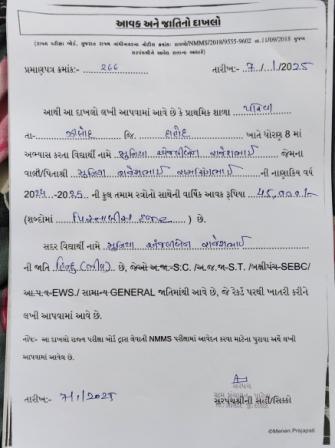 આવક અને જાતિનો દાખલો
(રાજ્ય પરીક્ષા બોર્ડ, ગુજરાત રાજ્ય ગાંધીનગરના નોટીસ ક્રમાંક: રાપબો/NMMS/2018/9555-9602 તા.11/09/2018 મુજબ
સરપંચશ્રીએ આપેલ દાખલાનો નમુનો)
પ્રમાણપત્ર ક્રમાંક:- ૨૮૬ તારીખ:- 7/1/2025
આથી આ દાખલો લખી આપવામાં આવે છે કે પ્રાથમિક શાળા
તા- જાલોદ જિ. દાહોદ ખાતે ધોરણ 8 માં
અભ્યાસ કરતા વિદ્યાર્થી નામે જેમના
વાલી/પિતાશ્રી ની નાણાકિય વર્ષ
2024-2025 ની કુલ તમામ સ્ત્રોતો સાથેની વાર્ષિક આવક રૂપિયા 45,000/-
(શબ્દોમાં પિસ્તાલીસ હજાર) છે.
સદર વિદ્યાર્થી નામે
ની જાતિ હિન્દુ (ભીલ) છે, જેઓ અ.જા-S.C. /અ.જ.જા-S.T. /બક્ષીપંચ-SEBC/
આ.પ.વ-EWS./ સામાન્ય GENERAL જાતિમાંથી આવે છે, જે રેકર્ડ પરથી ખાતરી કરીને
લખી આપવામાં આવે છે.
નોંધ:- આ દાખલો રાજ્ય પરીક્ષા બોર્ડ દ્વારા લેવાતી NMMS પરીક્ષામાં આવેદન કરવા માટેના પુરાવા અર્થે લખી
આપવામાં આવેલ છે.
તારીખ:- 7/1/2025
સરપંચશ્રીની સહી/સિક્કો
©Menen Prajapati